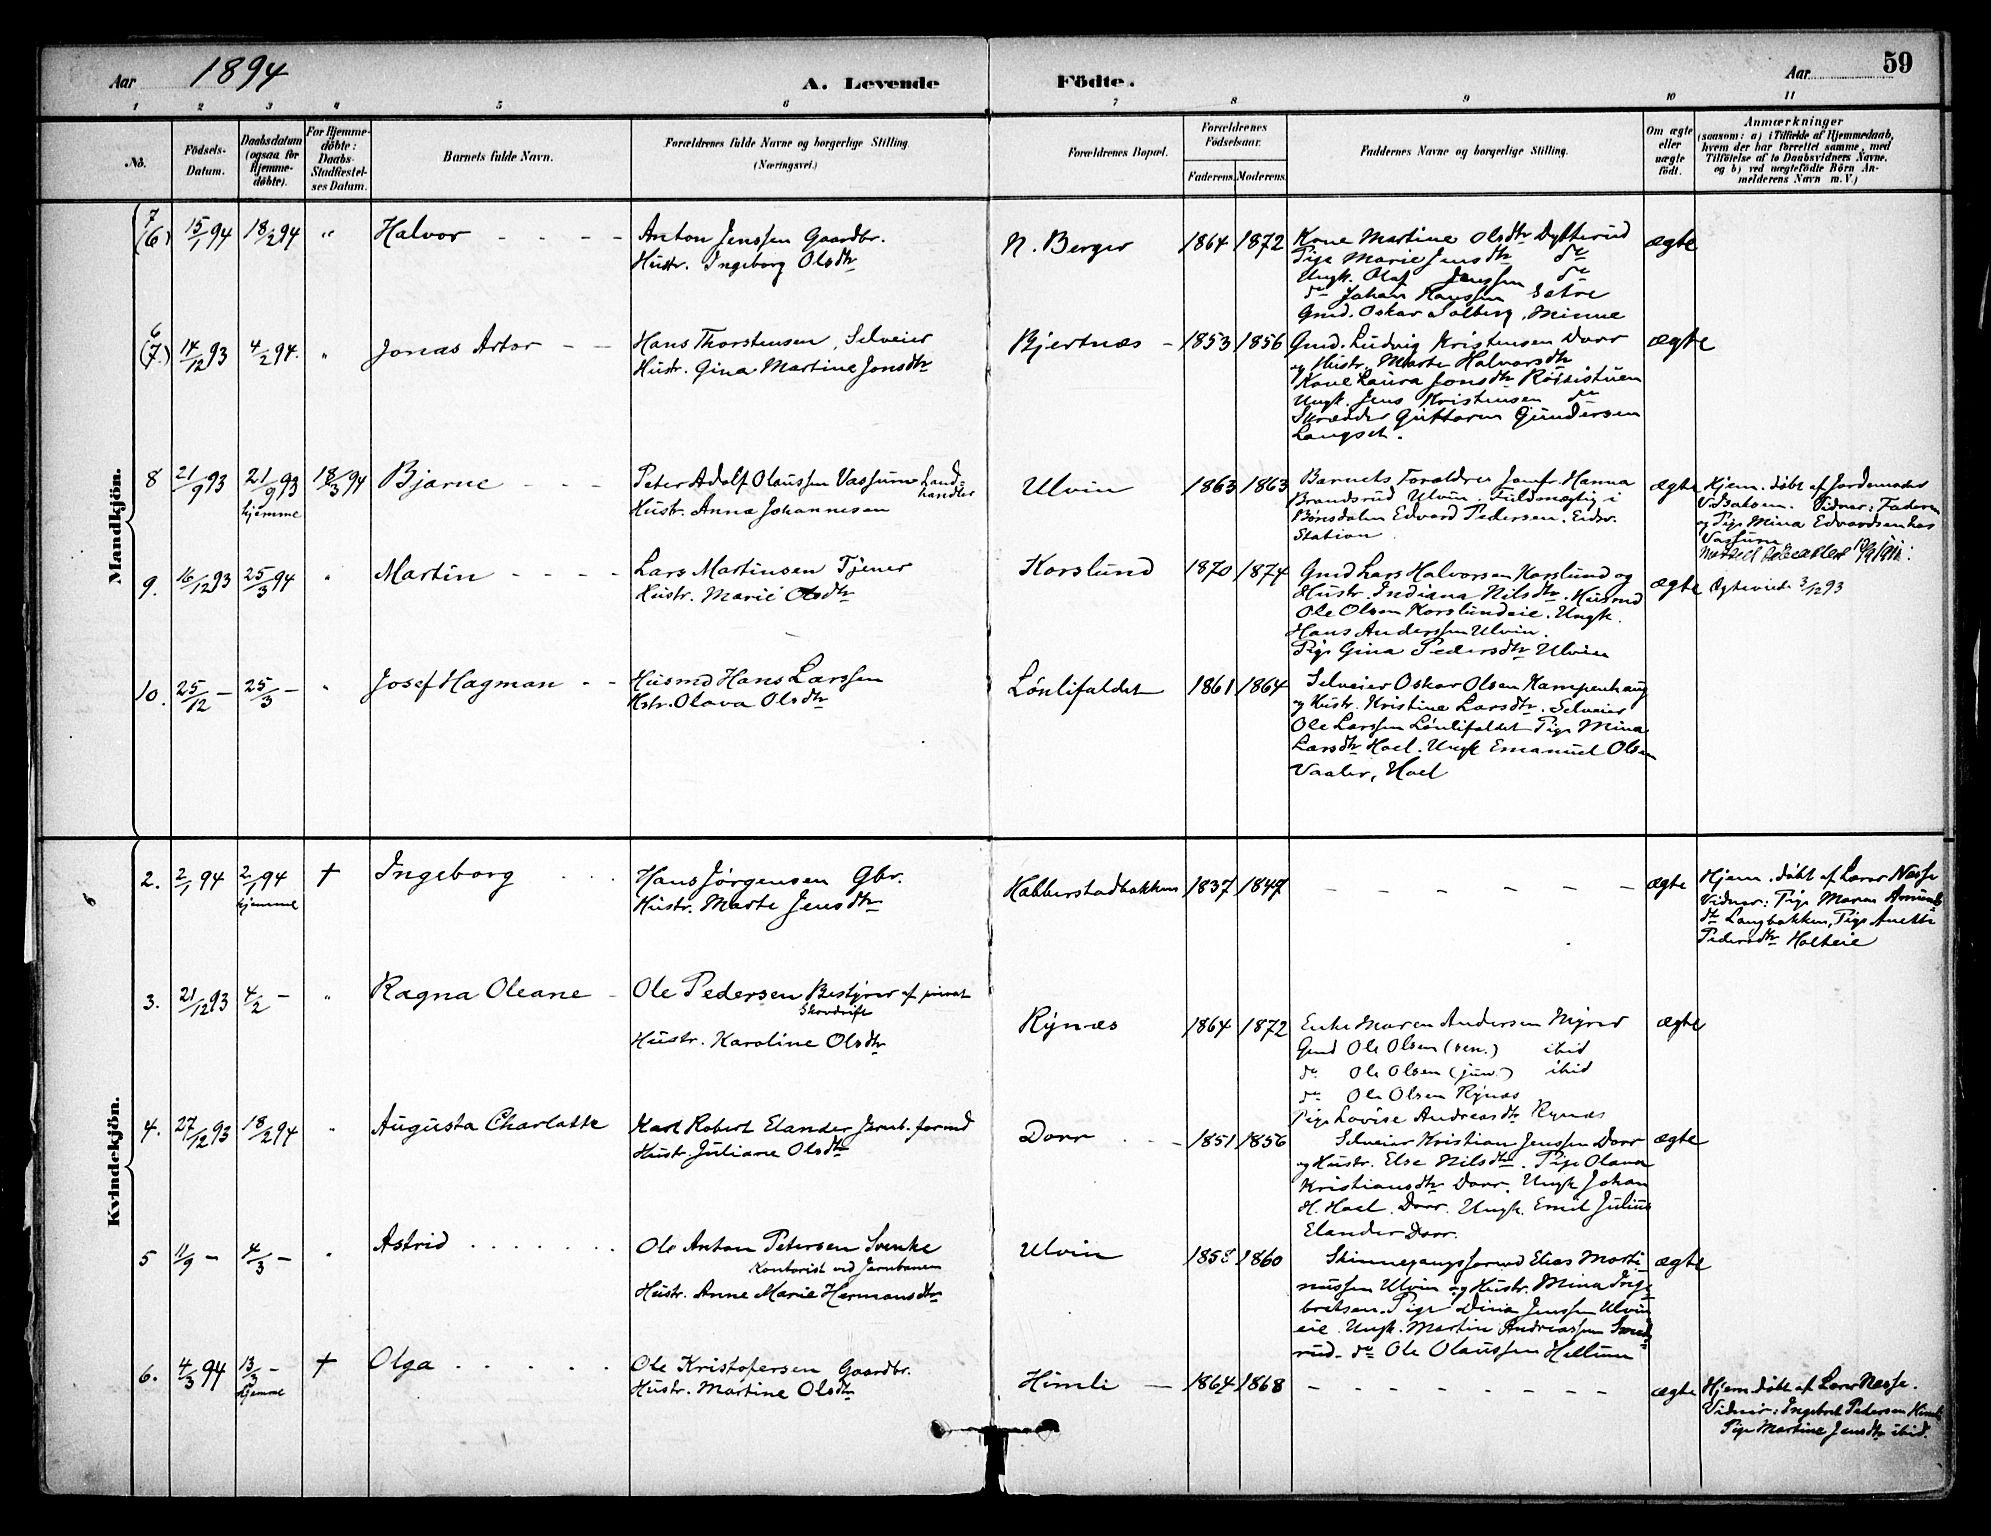 Aar 1894 A. Levende Födte. Aar 59
1 2 3 4 5 6 7 8 9 10 11
No. Födsels-Datum. Daabsdatum (ogsaa for Hjemme-döbte). For Hjemme-döbte: Daabs-Stadfæstel-ses Datum. Barnets fulde Navn. Forældrenes fulde Navne og borgerlige Stilling (Næringsvei.) Forældrenes Bopæl. Forældrenes Födselsaar. Faderens. Moderens. Faddernes Navne og borgerlige Stilling. Om ægte eller uægte født. Anmærkninger
(saasom: a) i Tilfælde af Hjemmedaab,
hvem der har forrettet samme, med
Tilföielse af to Daabsvidners Navne,
og b) ved uægtefödte Börn An-
melderens Navn m. V.)
Mandkjön.
7 (6) 15/1 94 18/2 94 " Halvor - - - - Anton Jenssen Gaardbr. N. Berger 1864 1872 Kone Martine Olsdtr Dytterud ægte
Hustr. Ingeborg Olsdtr Pige Marie Jensdtr do
Ungk. Olaf Jenssen do
do Johan Hanssen Sætre
Gmd. Oskar Solberg, Minne
6 (7.) 14/12 93 4/2 94. " Jonas Artor - - Hans Thorstensen, Selveier Bjertnæs - 1853 1856 Gmd. Ludvig Kristensen Dorr ægte
Hustr. Gina Martine Jonsdtr og Hustr. Marte Halvorsdtr
Kone Laura Jonsdtr Røisistuen
Ungk. Jens Kristensen do
Skrædder Guttorm Gundersen
Langset.
8 21/9 93 21/9 93 18/3 94 Bjarne - - - Peter Adolf Olaussen Vassum Land-handler Ulvin 1863 1863 Barnets Forældre Jomf. Hanna ægte Hjem. døbt af Jordemoder
hjemme Hustr. Anna Johannesen Brandsrud Ulvin. Fuldmægtig i V. Bålsen. Vidner: Faderen
Bønsdalen Edvard Pedersen. Eidsv. og Pige Mina Edvardsen hos
Station Vassum
9. 16/12 93 25/3 94 " Martin - - - - Lars Martinsen Tjener Korslund 1870 1874 Gmd Lars Halvorsen Korslund og ægte Ægteviede 3/12 93
Hustr. Marie Olsdtr Hustr. Indiana Nilsdtr. Husmd
Ole Olsen Korslundeie. Ungk.
Hans Anderssen Ulvin.
Pige Gina Pedersdtr Ulvin
10. 25/12 - 25/3 - " Josef Hagman - - Husmd Hans Larssen Lønlifaldet 1861 1864 Selveier Oskar Olsen Kampenhaug
Hstr. Olava Olsdtr og Hustr. Kristine Larsdtr. Selveier
Ole Larssen Lønlifaldet Pige Mina
Larsdtr Hoel. Ungk Emanuel Olsen
Vaaler, Hoel
Kvindekjön.
6
2. 2/1 94 2/1 94 † Ingeborg . . . Hans Jørgensen Gbr. Habberstadbakken 1837 1847 - - - - - - ægte Hjem. døbt af Lærer Næsse
hjemme Hustr. Marte Jensdtr Vidner: Pige Maren Amunds-
dtr Langbakken, Pige Anette
Pedersdtr Holteie
3. 21/12 93 4/2 - " Ragna Oleane - Ole Pedersen Bestyrer af privat
Skovdrift Rynæs 1864 1872 Enke Maren Andersen Myrer ægte
Hustr. Karoline Olsdtr Gmd Ole Olsen (sen.) ibid
do Ole Olsen (jun.) ibid
do Ole Olsen Rynæs
Pige Lovise Andreasdtr Rynæs
4. 27/12 93 18/2 94 " Augusta Charlotte Karl Robert Elander Jernb. formd Dorr . - 1851 1856 Selveier Kristian Jenssen Dorr ægte
Hustr. Juliane Olsdtr og Hustr. Else Nilsdtr. Pige Olava
Kristiansdtr Dorr. Ungk Johan
H. Hoel. Dorr. Ungk. Emil Julius
Elander Dorr.
5 11/9 - 4/3 - " Astrid . . . . . . . Ole Anton Petersen Svenke Ulvin 1858 1860 Skinnegangsformd Elias Marti- ægte
Kontorist ved Jernbanen nussen Ulvin og Hustr. Mina Inge-
Hustr. Anne Marie Hermansdtr bretsen. Pige Dina Jenssen Ulvin
eie. Ungk. Martin Andreassen Smed-
rud. do Ole Olaussen Hellum
6. 4/3 94 13/3 - † Olga . . . . . Ole Kristofersen Gaardbr. Himli - 1864 1868 - - - - - - - - ægte Hjem døbt af Lærer Næsse.
hjemme Hustr. Martine Olsdtr Vidner: Ingebret Pedersen Himli
Pige Martine Jensdtr ibid.